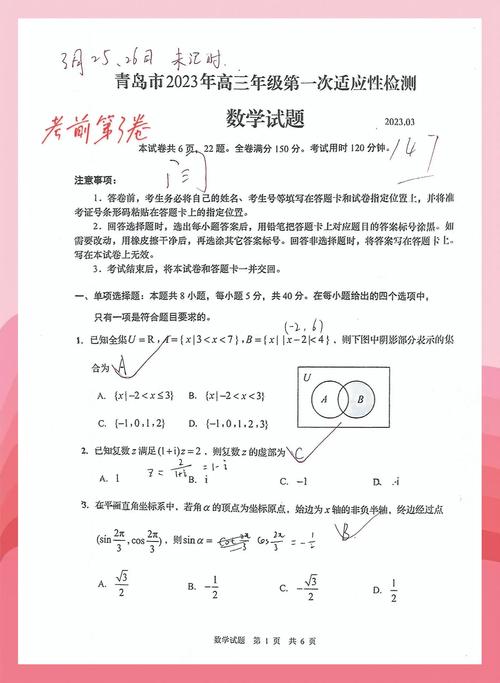 3月25、26日 未记时.
青岛市2023年高三年级第一次适应性检测
考前第3卷
数学试题
2023.03
本试卷共6页，22题。全卷满分150分。考试用时120分钟。
147
注意事项：
1．答卷前，考生务必将自己的姓名、考生号等填写在答题卡和试卷指定位置上，并将准
考证号条形码粘贴在答题卡上的指定位置。
2．回答选择题时，选出每小题答案后，用铅笔把答题卡上对应题目的答案标号涂黑。如
需要改动，用橡皮擦干净后，再选涂其它答案标号。回答非选择题时，将答案写在答题卡上。
写在本试卷上无效。
3．考试结束后，将本试卷和答题卡一并交回。
一、单项选择题：本题共8小题，每小题5分，共40分。在每小题给出的四个选项中，
只有一项是符合题目要求的。
(-2, 6)
1．已知全集U=R，A={x|3<x<7}，B={x||x-2|<4}，则下图中阴影部分表示的集
合为 A
A．{x|-2<x≤3} B．{x|-2<x<3}
C．{-1,0,1,2} D．{-1,0,1,2,3}
U
A B
2．已知复数z满足(1+i)z=2，则复数z的虚部为 C
A．1 B．i C．-1 D．-i
z=2/(1+i)=1-i
3．在平面直角坐标系中，若角α的顶点为坐标原点，始边为x轴的非负半轴，终边经过点
(sin 2π/3, cos 2π/3)，则sinα= cos 2π/3 = -1/2 B
A．√3/2 B．-1/2 C．-√3/2 D．1/2
数学试题 第1页 共6页